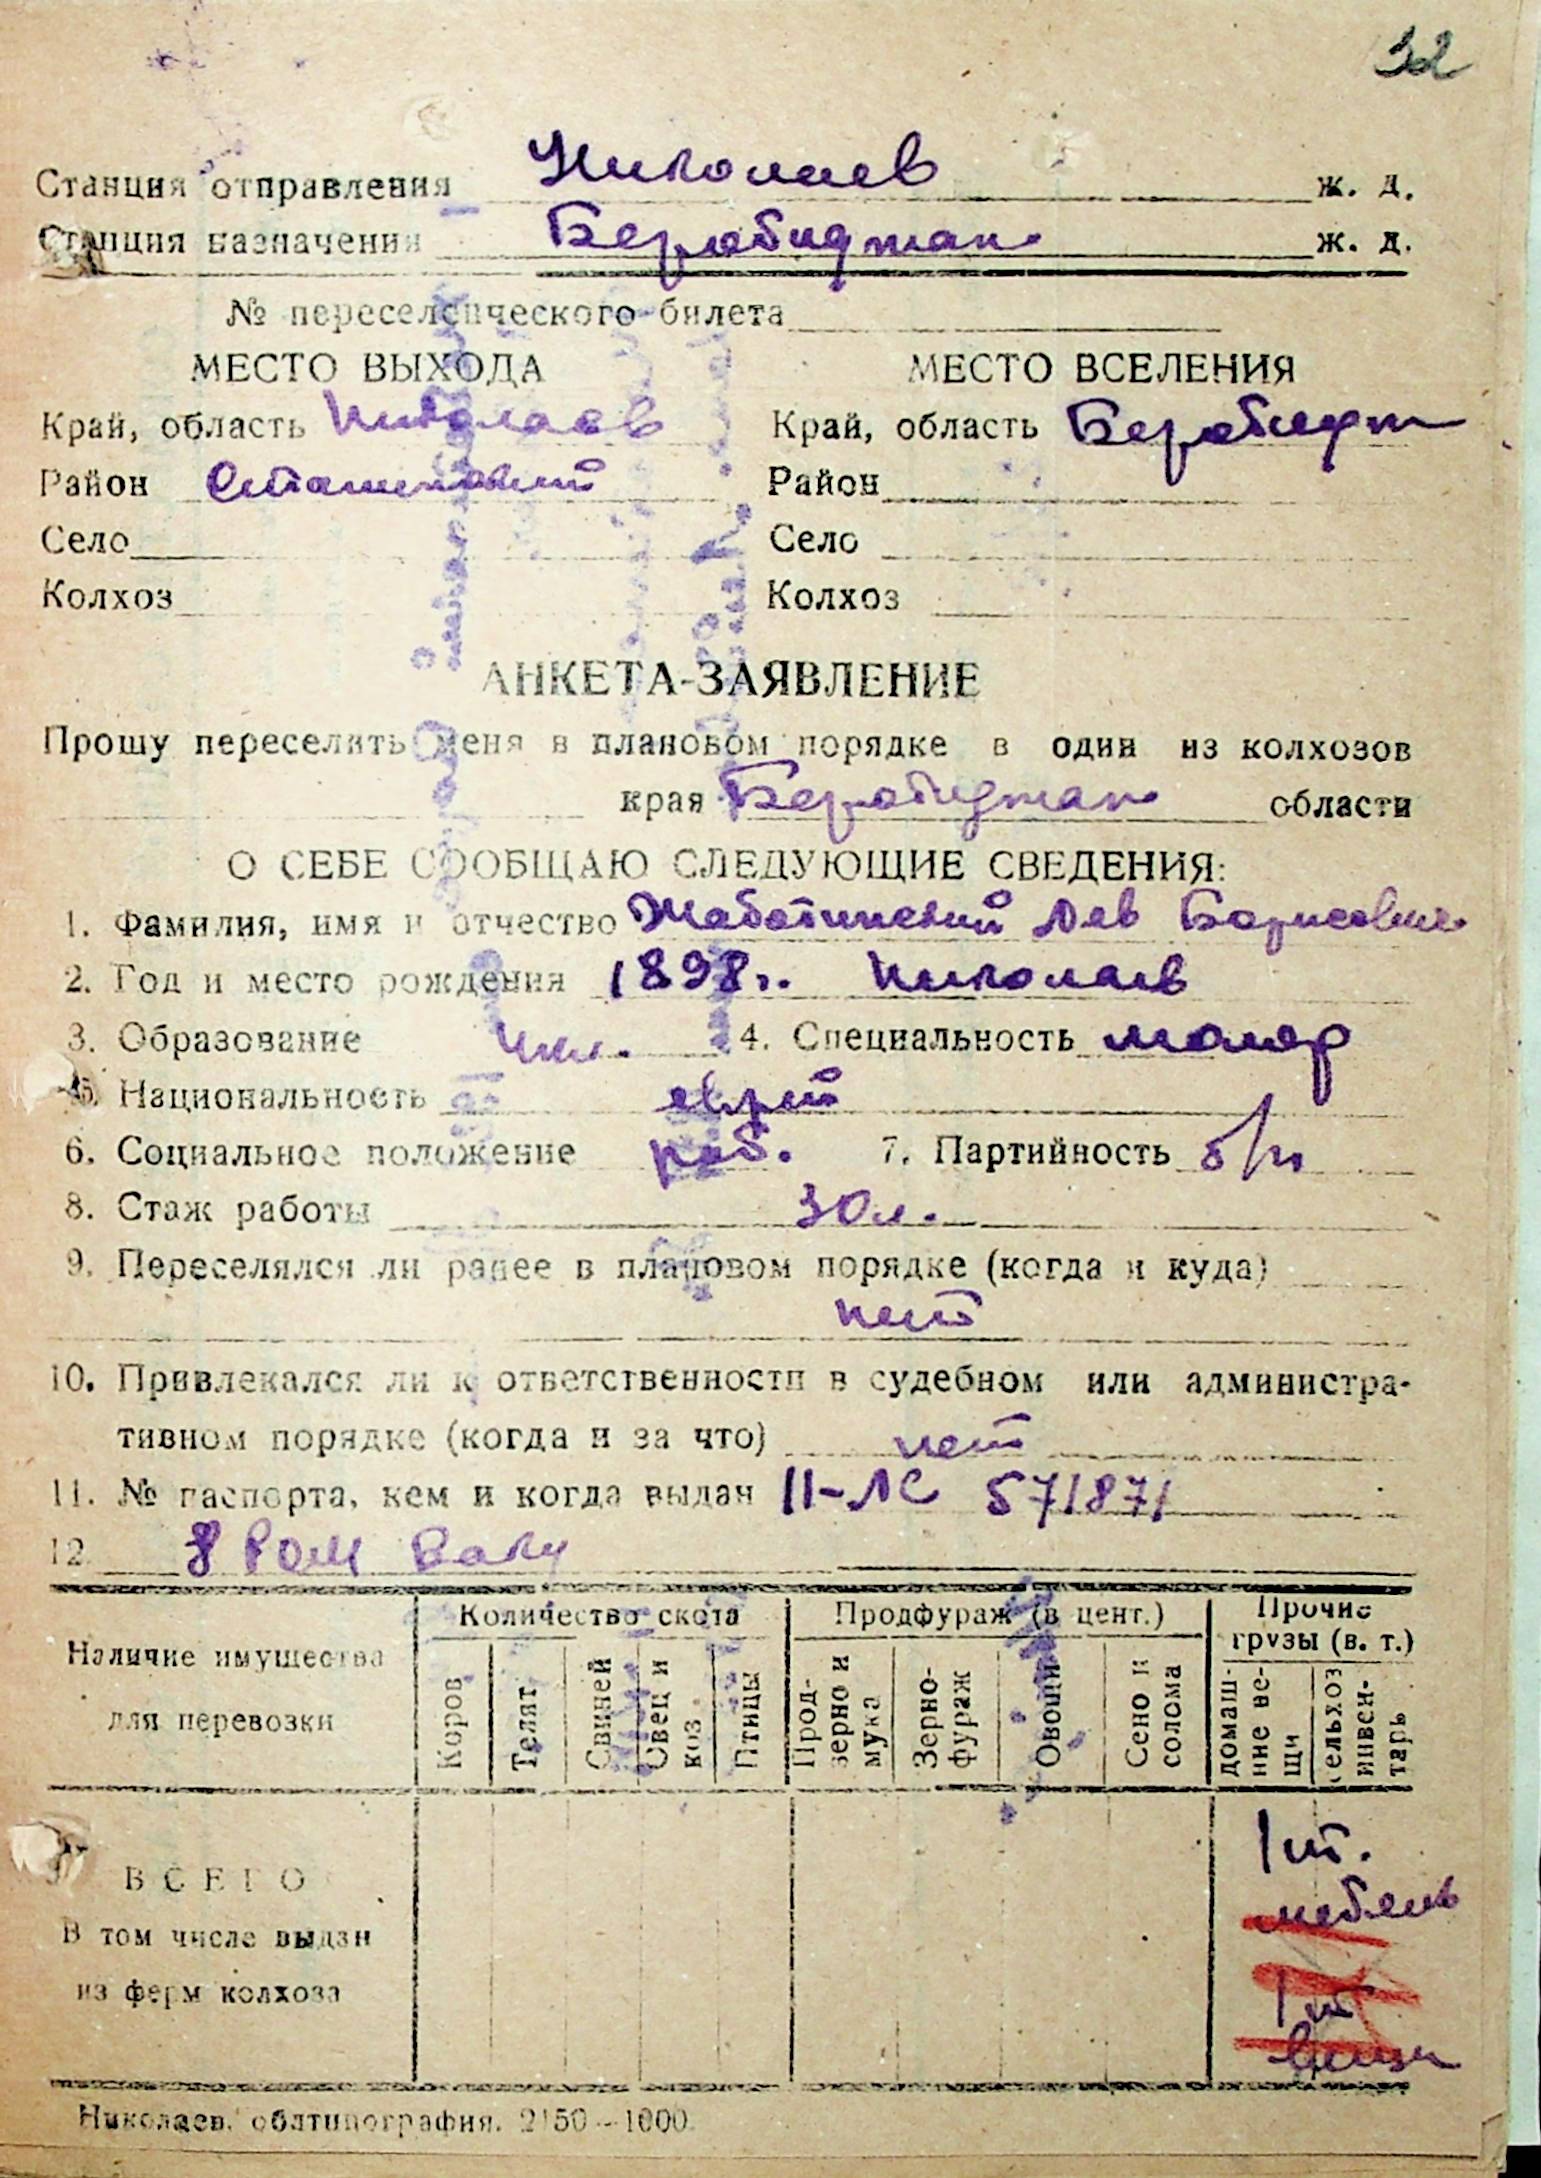 32
Станция отправления Николаев ж. д.
Станция назначения Биробиджан ж. д.
№ переселенческого билета
МЕСТО ВЫХОДА МЕСТО ВСЕЛЕНИЯ
Край, область Николаев Край, область Биробидж
Район Сталинский Район
Село Село
Колхоз Колхоз
АНКЕТА-ЗАЯВЛЕНИЕ
Прошу переселить меня в плановом порядке в один из колхозов
края Биробиджан области
О СЕБЕ СООБЩАЮ СЛЕДУЮЩИЕ СВЕДЕНИЯ:
1. Фамилия, имя и отчество Жаботинский Лев Борисович
2. Год и место рождения 1898 г. Николаев
3. Образование 4 кл. 4. Специальность маляр
5. Национальность еврей
6. Социальное положение раб. 7. Партийность б/п
8. Стаж работы 30 л.
9. Переселялся ли ранее в плановом порядке (когда и куда)
нет
10. Привлекался ли к ответственности в судебном или администра-
тивном порядке (когда и за что) нет
11. № паспорта, кем и когда выдан II-ЛС 571871
12. 8
Наличие имущества для перевозки Количество скота Продфураж (в цент.) Прочие грузы (в. т.)
Коров Телят Свиней Овец и коз. Птицы Прод-зерно и мука Зерно-фураж Овощи Сено и солома домаш-ние ве-щи сельхоз инвен-тарь
ВСЕГО 1 т.
мебель
В том числе выдан
из ферм колхоза 1 т
вещи
Николаев, облтипография. 2150—1000.